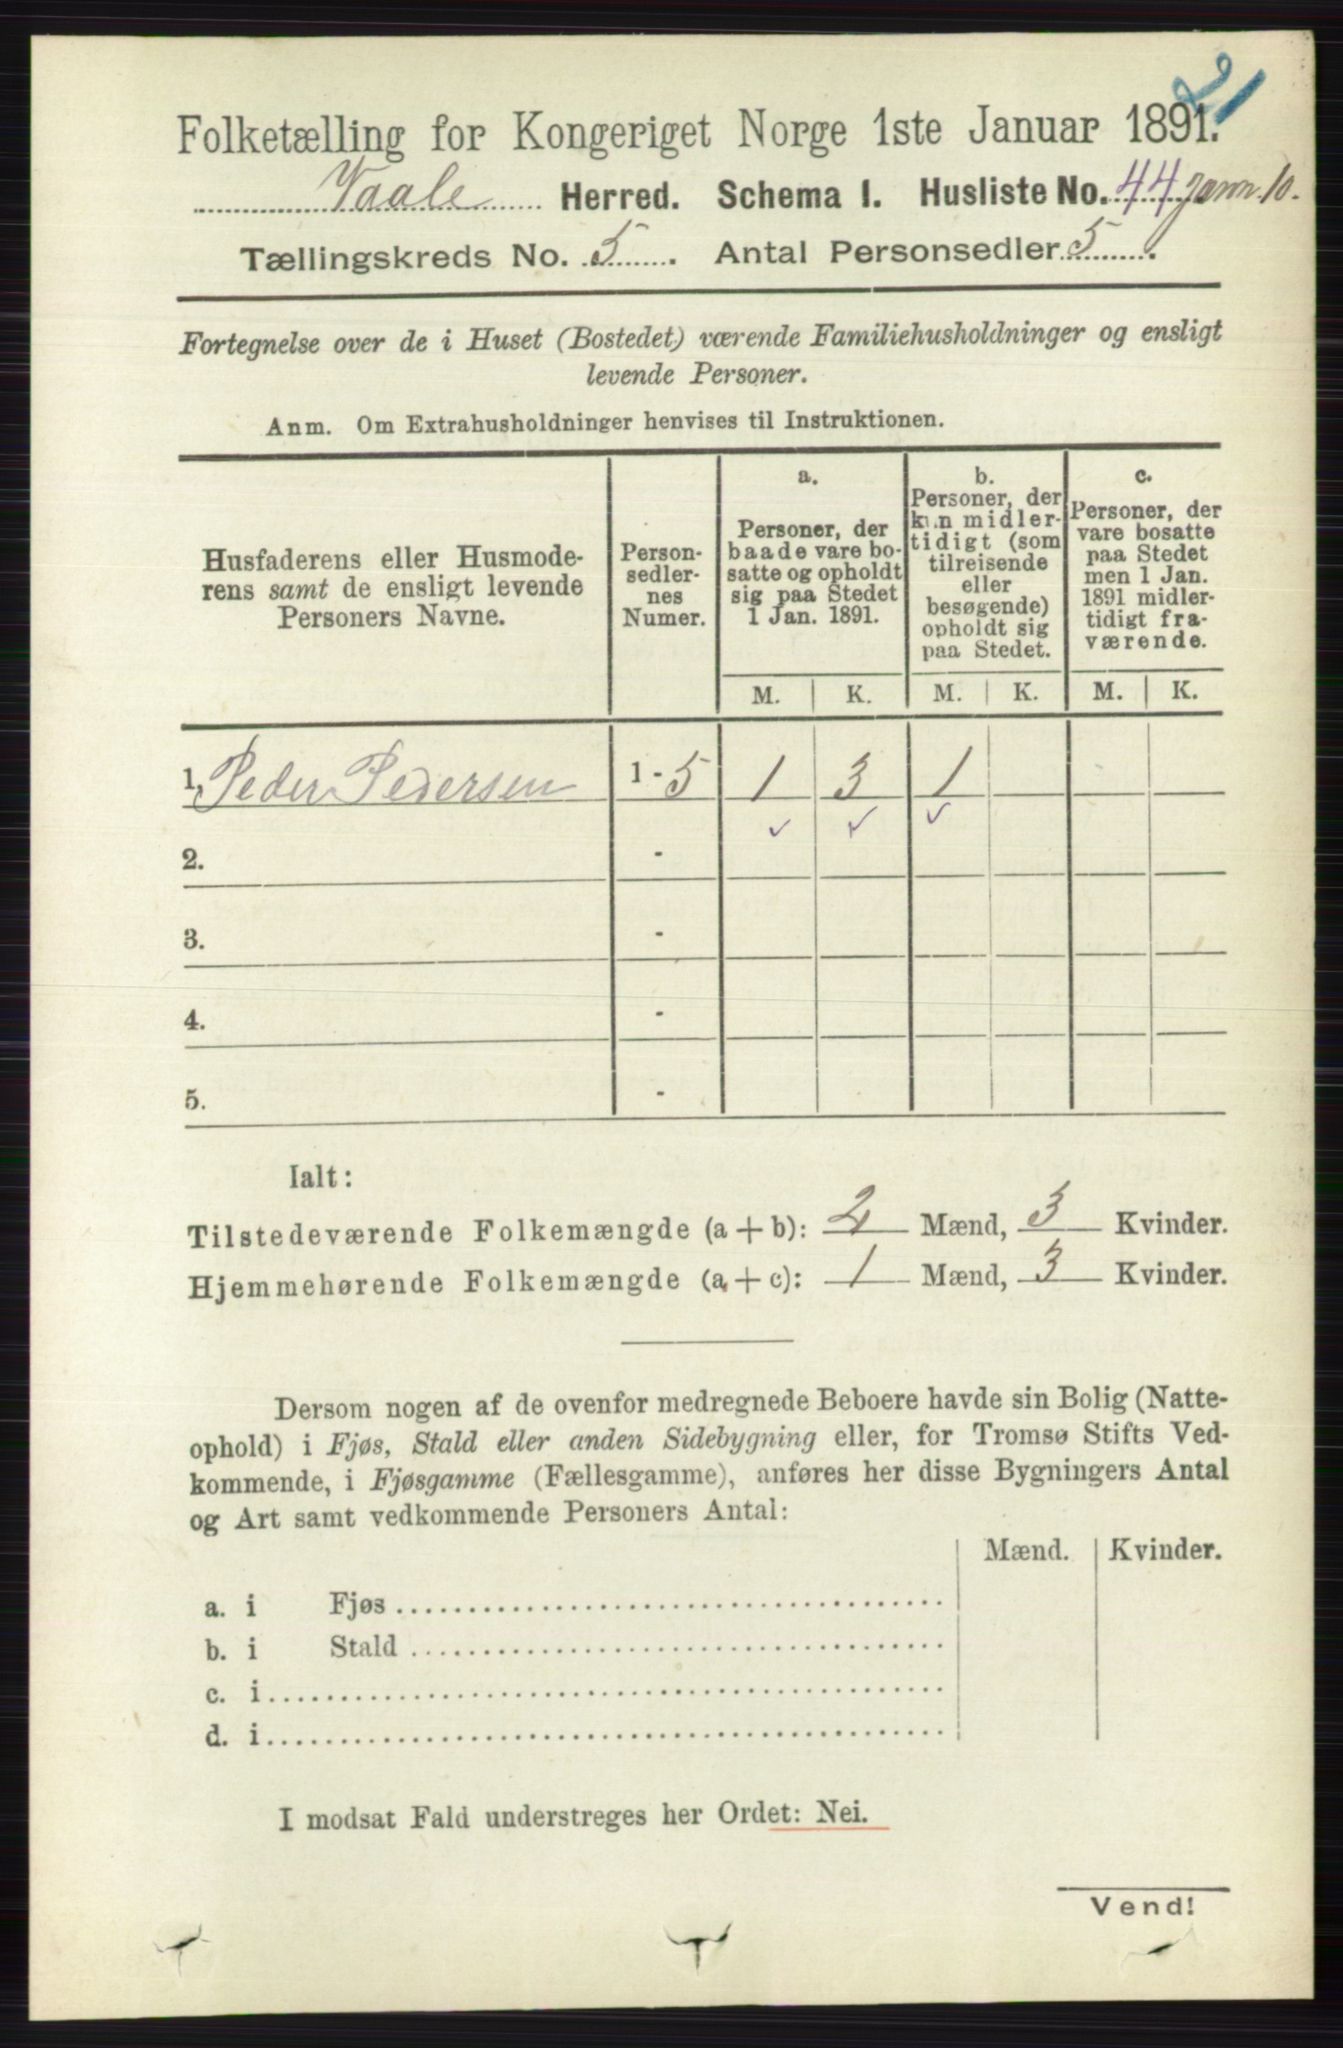 21
Folketælling for Kongeriget Norge 1ste Januar 1891.
Vaale Herred. Schema I. Husliste No. 44 janr. 10.
Tællingskreds No. 5. Antal Personsedler 5.
Fortegnelse over de i Huset (Bostedet) værende Familiehusholdninger og ensligt
levende Personer.
Anm. Om Extrahusholdninger henvises til Instruktionen.
Husfaderens eller Husmode-
rens samt de ensligt levende
Personers Navne.
Person-
sedler-
nes
Numer.
a.
Personer, der
baade vare bo-
satte og opholdt
sig paa Stedet
1 Jan. 1891.
b.
Personer, der
kun midler-
tidigt (som
tilreisende
eller
besøgende)
opholdt sig
paa Stedet.
c.
Personer, der
vare bosatte
paa Stedet
men 1 Jan.
1891 midler-
tidigt fra-
værende.
M. K. M. K. M. K.
1. Peder Pedersen 1 - 5 1 3 1
2. -
3. -
4. -
5. -
Ialt:
Tilstedeværende Folkemængde (a + b): 2 Mænd, 3 Kvinder.
Hjemmehørende Folkemængde (a + c): 1 Mænd, 3 Kvinder.
Dersom nogen af de ovenfor medregnede Beboere havde sin Bolig (Natte-
ophold) i Fjøs, Stald eller anden Sidebygning eller, for Tromsø Stifts Ved-
kommende, i Fjøsgamme (Fællesgamme), anføres her disse Bygningers Antal
og Art samt vedkommende Personers Antal:
Mænd. Kvinder.
a. i Fjøs
b. i Stald
c. i
d. i
I modsat Fald understreges her Ordet: Nei.
Vend!